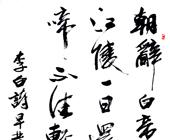 朝辭白帝
江陵一日還
啼不住輕
李白詩早